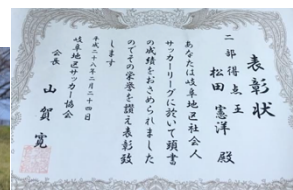 表彰状
二部得点王
松田憲洋 殿
あなたは岐阜地区社会人
サッカーリーグに於いて頭書
の成績をおさめられました
のでその栄誉を讃え表彰致
します
平成二十八年二月二十四日
岐阜地区サッカー協会
会長 山賀寛